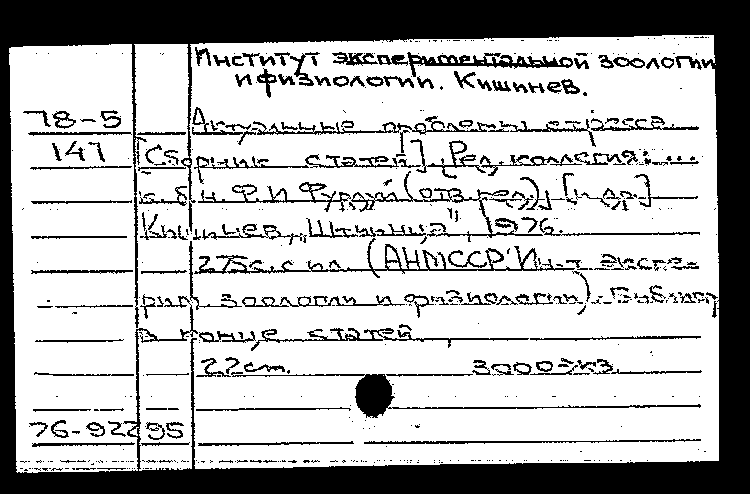 Институт экспериментальной зоологии
и физиологии. Кишинев.
78-5 Актуальные проблемы стресса.
147 [Сборник статей]. Ред. коллегия: ...
к. б. н. Ф. И. Фурдуй (отв. ред.), [и др.]
Кишинев, "Штиинца", 1976.
275с. с ил. (АН МССР. Ин-т экспе-
рим. зоологии и физиологии). Библиогр
в конце статей.
22 см. 3000экз.
76-92295